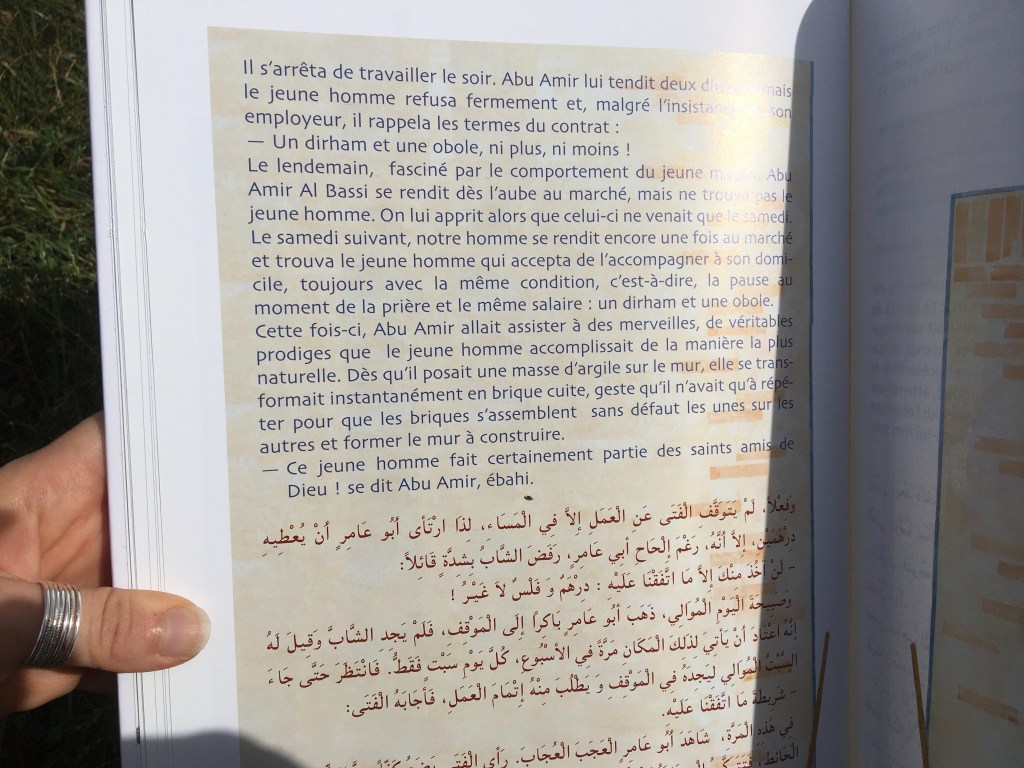 Il s'arrêta de travailler le soir. Abu Amir lui tendit deux mais
le jeune homme refusa fermement et, malgré son
employeur, il rappela les termes du contrat :
— Un dirham et une obole, ni plus, ni moins !
Le lendemain, fasciné par le comportement du jeune Abu
Amir Al Bassi se rendit dès l'aube au marché, mais ne trouva pas le
jeune homme. On lui apprit alors que celui-ci ne venait que le samedi.
Le samedi suivant, notre homme se rendit encore une fois au marché
et trouva le jeune homme qui accepta de l'accompagner à son domi-
cile, toujours avec la même condition, c'est-à-dire, la pause au
moment de la prière et le même salaire : un dirham et une obole.
Cette fois-ci, Abu Amir allait assister à des merveilles, de véritables
prodiges que le jeune homme accomplissait de la manière la plus
naturelle. Dès qu'il posait une masse d'argile sur le mur, elle se trans-
formait instantanément en brique cuite, geste qu'il n'avait qu'à répé-
ter pour que les briques s'assemblent sans défaut les unes sur les
autres et former le mur à construire.
— Ce jeune homme fait certainement partie des saints amis de
Dieu ! se dit Abu Amir, ébahi.
وَفِعْلاً، لَمْ يَتَوَقَّفِ الْفَتَى عَنِ الْعَمَلِ إِلاَّ فِي الْمَسَاءِ، لِذَا ارْتَأَى أَبُو عَامِرٍ أَنْ يُعْطِيهِ
دِرْهَمَيْنِ، إِلاَّ أَنَّهُ، رَغْمَ إِلْحَاحِ أَبِي عَامِرٍ، رَفَضَ الشَّابُّ بِشِدَّةٍ قَائِلاً:
- لَنْ آخُذَ مِنْكَ إِلاَّ مَا اتَّفَقْنَا عَلَيْهِ : دِرْهَمٌ وَ فَلْسٌ لاَ غَيْرُ !
وَصَبِيحَةَ الْيَوْمِ الْمُوَالِي، ذَهَبَ أَبُو عَامِرٍ بَاكِرًا إِلَى الْمَوْقِفِ، فَلَمْ يَجِدِ الشَّابَّ وَقِيلَ لَهُ
إِنَّهُ اعْتَادَ أَنْ يَأْتِيَ لِذَلِكَ الْمَكَانِ مَرَّةً فِي الأُسْبُوعِ، كُلَّ يَوْمِ سَبْتٍ فَقَطْ. فَانْتَظَرَ حَتَّى جَاءَ
السَّبْتُ الْمُوَالِي لِيَجِدَهُ فِي الْمَوْقِفِ وَ يَطْلُبَ مِنْهُ إِتْمَامَ الْعَمَلِ، فَأَجَابَهُ الْفَتَى:
- شَرِيطَةَ مَا اتَّفَقْنَا عَلَيْهِ.
فِي هَذِهِ الْمَرَّةِ، شَاهَدَ أَبُو عَامِرٍ الْعَجَبَ الْعُجَابَ. رَأَى الْفَتَى